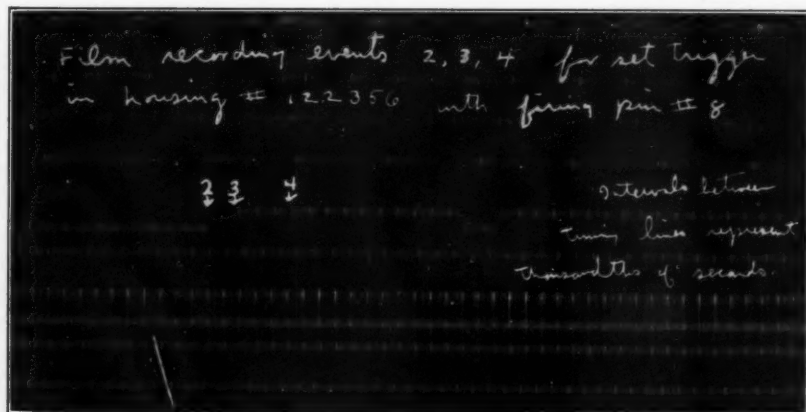 Film recording events 2, 3, 4 for set trigger
in housing # 122356 with firing pin # 8
2 3 4
Intervals between
timing lines represent
thousandths of seconds.